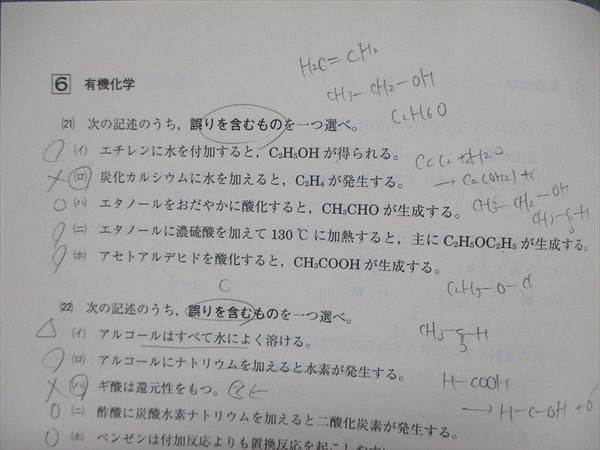 H₂C=CH₂
6 有機化学
CH₃-CH₂-OH
C₂H6O
(21) 次の記述のうち,誤りを含むものを一つ選べ。
(イ) エチレンに水を付加すると,C₂H₅OHが得られる。
(ロ) 炭化カルシウムに水を加えると,C₂H₄が発生する。
(ハ) エタノールをおだやかに酸化すると,CH₃CHOが生成する。
CH₃-CH₂-OH
(ニ) エタノールに濃硫酸を加えて130℃に加熱すると,主にC₂H₅OC₂H₅が生成する。
(ホ) アセトアルデヒドを酸化すると,CH₃COOHが生成する。
C
(22) 次の記述のうち,誤りを含むものを一つ選べ。
(イ) アルコールはすべて水によく溶ける。
(ロ) アルコールにナトリウムを加えると水素が発生する。
H-COOH
(ハ) ギ酸は還元性をもつ。
(ニ) 酢酸に炭酸水素ナトリウムを加えると二酸化炭素が発生する。
(ホ) ベンゼンは付加反応よりも置換反応を起こしやすい